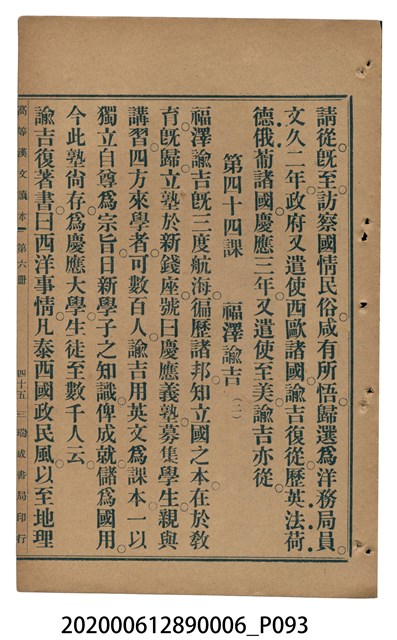 請從。既至。訪察國情民俗。咸有所悟。歸選爲洋務局員。
文久二年。政府又遣使西歐諸國。諭吉復從歷英法荷
德俄葡諸國。慶應三年。又遣使至美。諭吉亦從。
第四十四課　福澤諭吉（二）
福澤諭吉既三度航海。徧歷諸邦。知立國之本。在於教
育。既歸。立塾於新錢座。號曰慶應義塾。募集學生。親與
講習。四方來學者。可數百人。諭吉用英文爲課本。一以
獨立自尊爲宗旨。日新學子之知識。俾成就儲爲國用。
今此塾尚存。爲慶應大學。生徒至數千人云。
諭吉復著書。曰西洋事情。凡泰西國政民風。以至地理
高等漢文讀本　第六冊　四十五　三　瑞成書局印行
202000612890006_P093